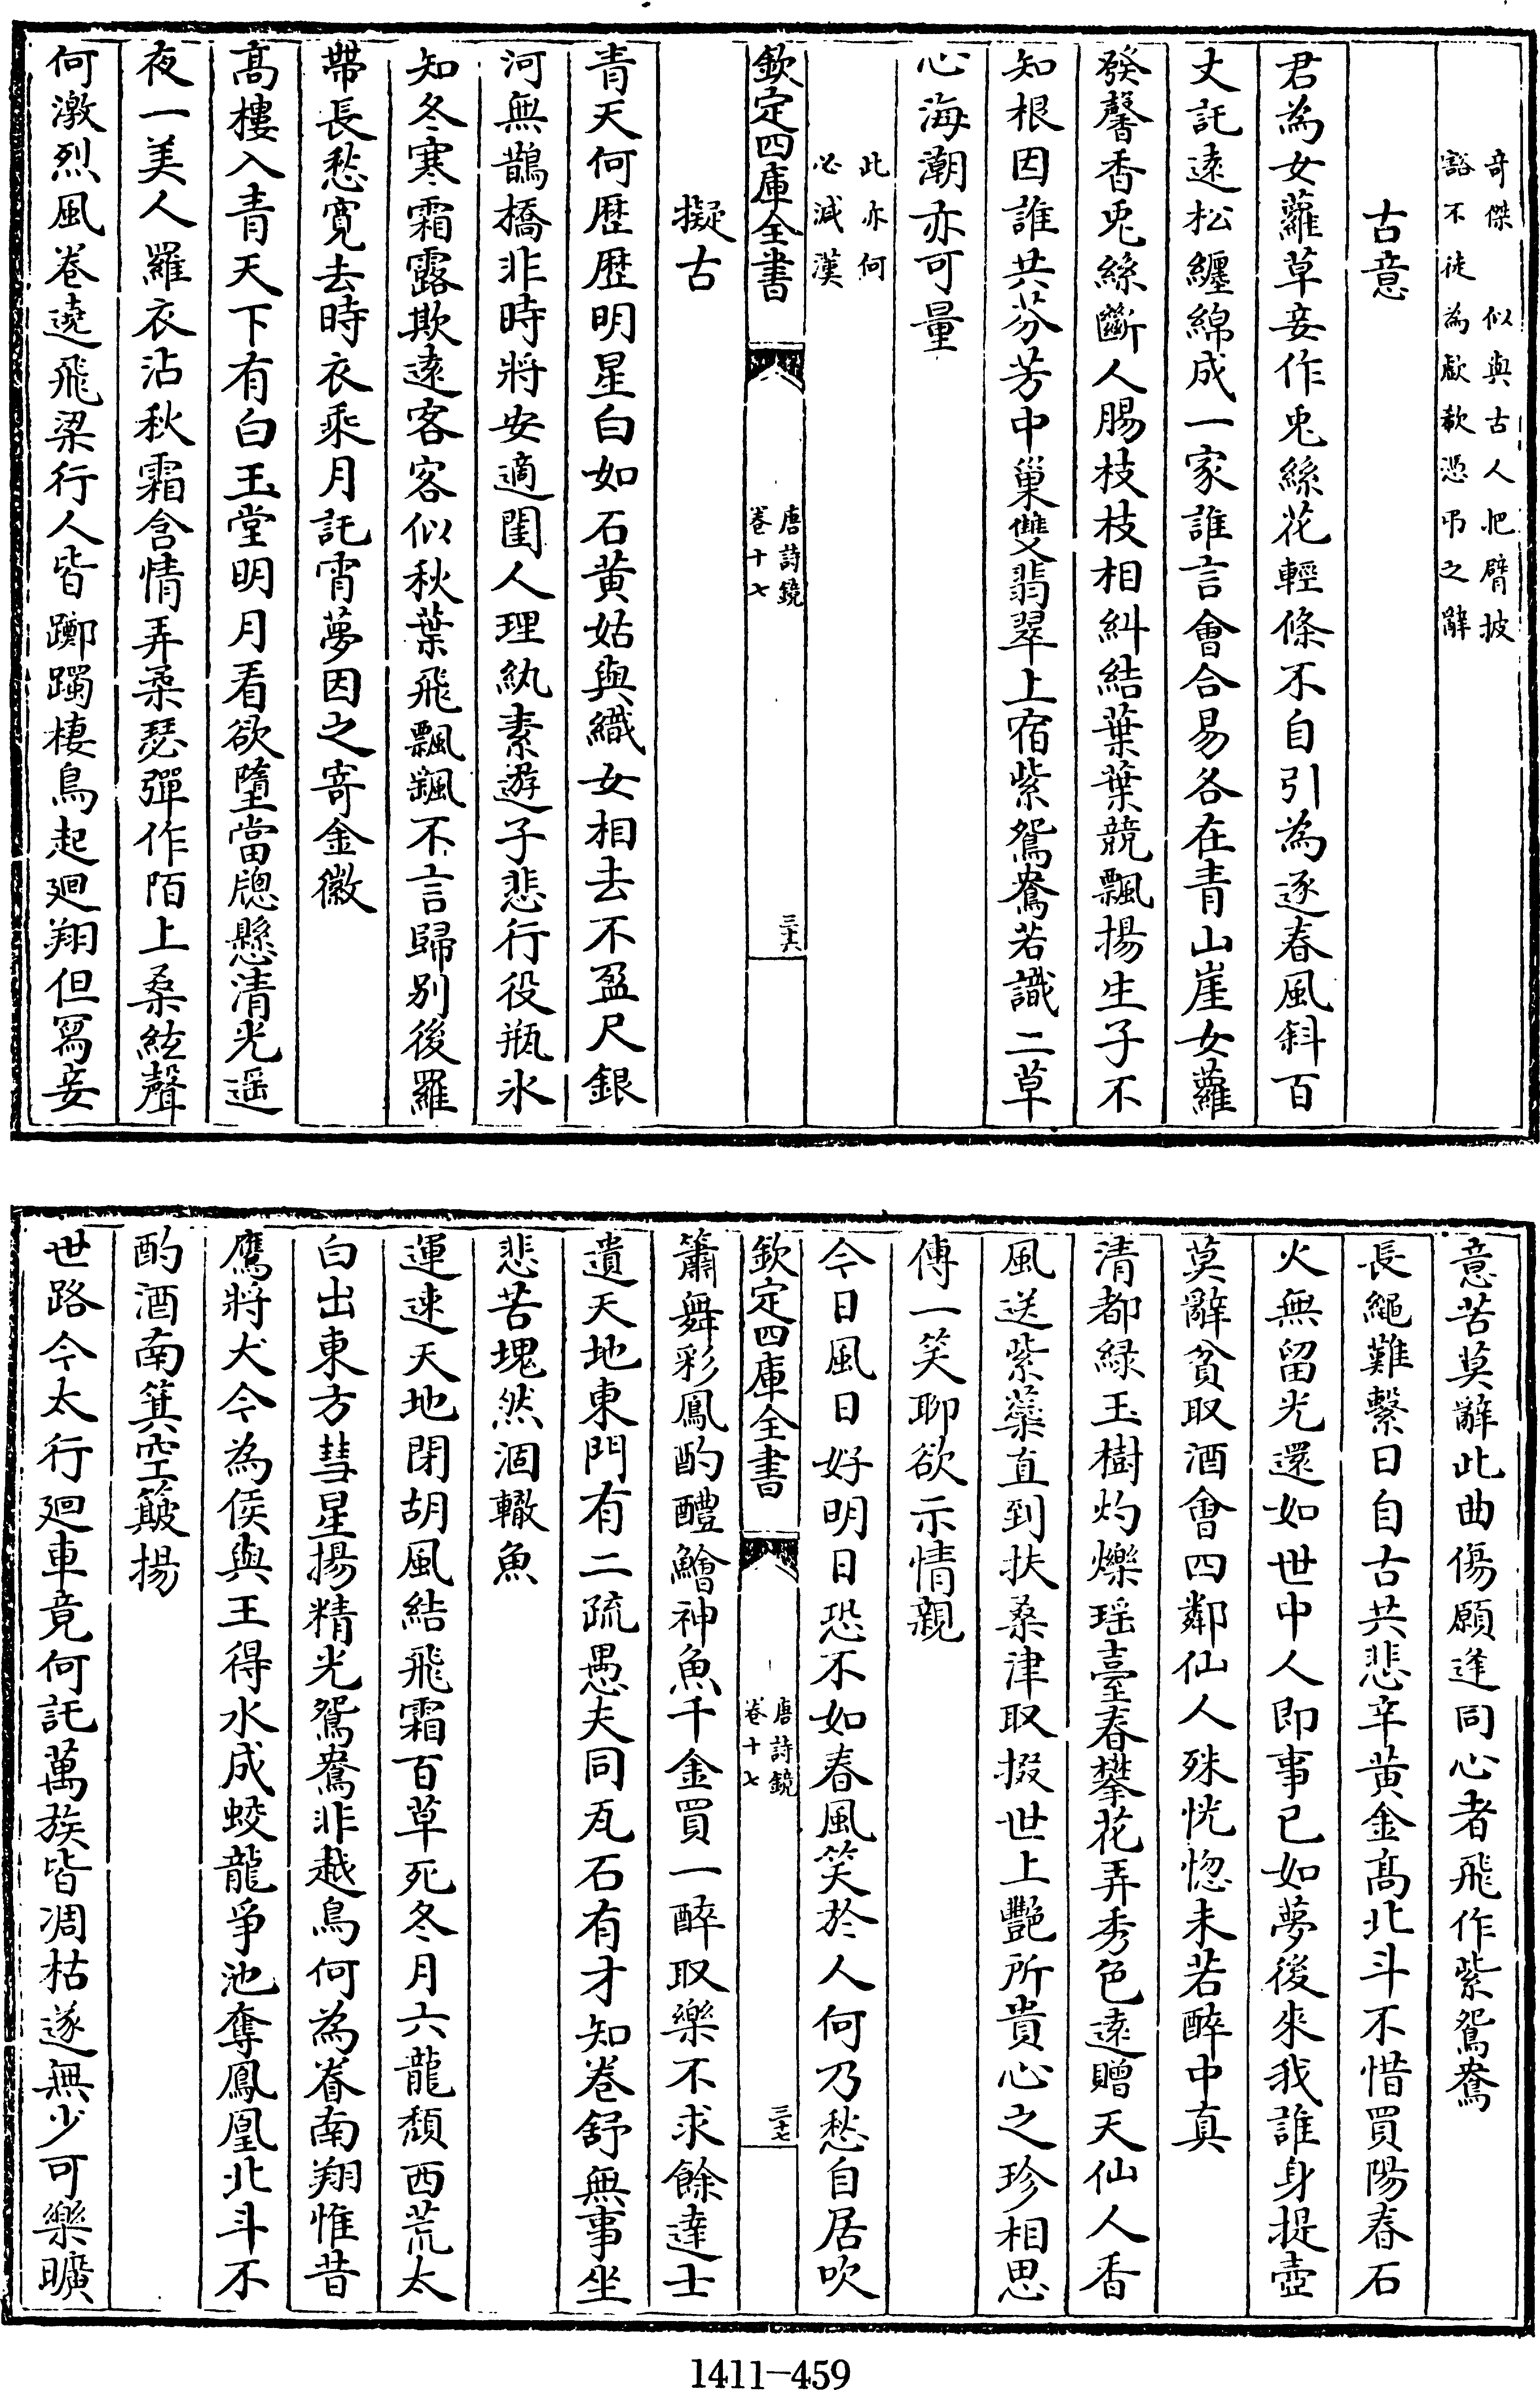 奇傑　似與古人把臂披
豁不徒為歔欷憑弔之辭
古意
君為女蘿草妾作兎絲花輕條不自引為逐春風斜百
丈託逺松纏綿成一家誰言會合易各在青山崖女蘿
發馨香兎絲斷人腸枝枝相糾結葉葉競飄揚生子不
知根因誰共芬芳中巢雙翡翠上宿紫鴛鴦若識二草
心海潮亦可量
此亦何
必減漢
欽定四庫全書
唐詩鏡
卷十七
三十六
擬古
青天何歴歴明星白如石黄姑與織女相去不盈尺銀
河無鵲橋非時將安適閨人理紈素遊子悲行役瓶氷
知冬寒霜露欺逺客客似秋葉飛飄颻不言歸别後羅
帶長愁寛去時衣乘月託宵夢因之寄金徽
髙樓入青天下有白玉堂明月看欲墮當牕懸清光遥
夜一美人羅衣沾秋霜含情弄柔瑟彈作陌上桑絃聲
何激烈風巻遶飛梁行人皆躑躅棲鳥起廻翔但冩妾
意苦莫辭此曲傷願逢同心者飛作紫鴛鴦
長繩難繫日自古共悲辛黄金髙北斗不惜買陽春石
火無留光還如世中人即事已如夢後來我誰身提壺
莫辭貧取酒會四鄰仙人殊恍惚未若醉中真
清都緑玉樹灼爍瑶臺春攀花弄秀色逺贈天仙人香
風送紫蘂直到扶桑津取掇世上艷所貴心之珍相思
傳一笑聊欲示情親
今日風日好明日恐不如春風笑於人何乃愁自居吹
欽定四庫全書
唐詩鏡
卷十七
三十七
簫舞彩鳳酌醴鱠神魚千金買一醉取樂不求餘達士
遺天地東門有二疏愚夫同瓦石有才知卷舒無事坐
悲苦塊然涸轍魚
運速天地閉胡風結飛霜百草死冬月六龍頽西荒太
白出東方彗星揚精光鴛鴦非越鳥何為眷南翔惟昔
鷹將犬今為侯與王得水成蛟龍爭池奪鳳凰北斗不
酌酒南箕空簸揚
世路今太行廻車竟何託萬族皆凋枯遂無少可樂曠
1411-459